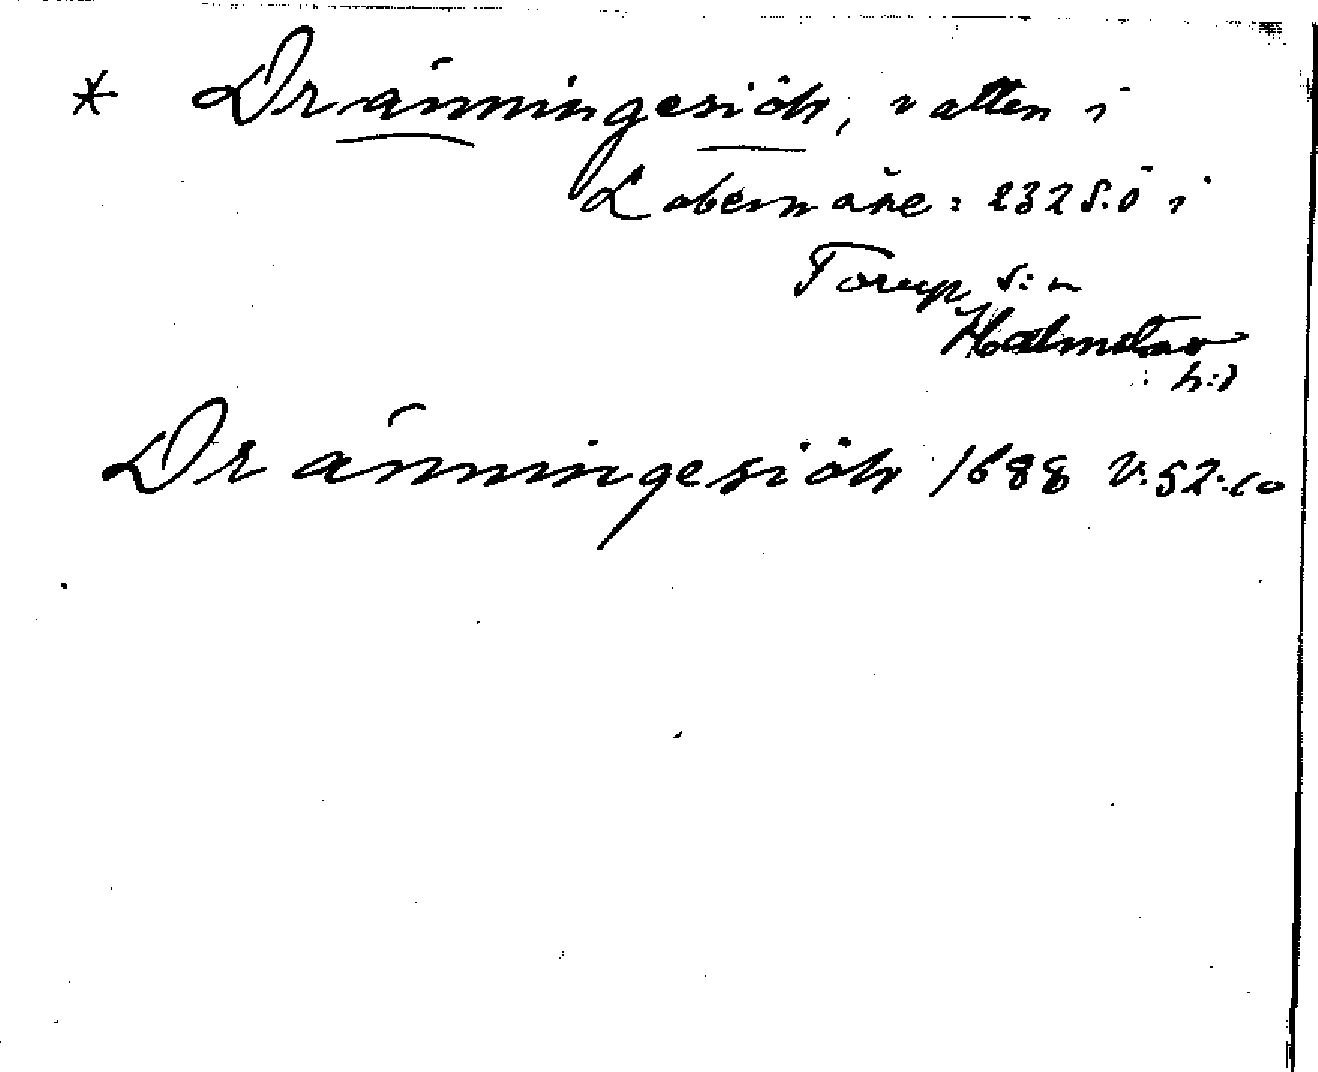 * Dränningesiöh, vatten i
Labernäre: 232 S.Ö i
Torup s:n
Halmstad
h:d
Dränningesiöh 1688 V:52:10